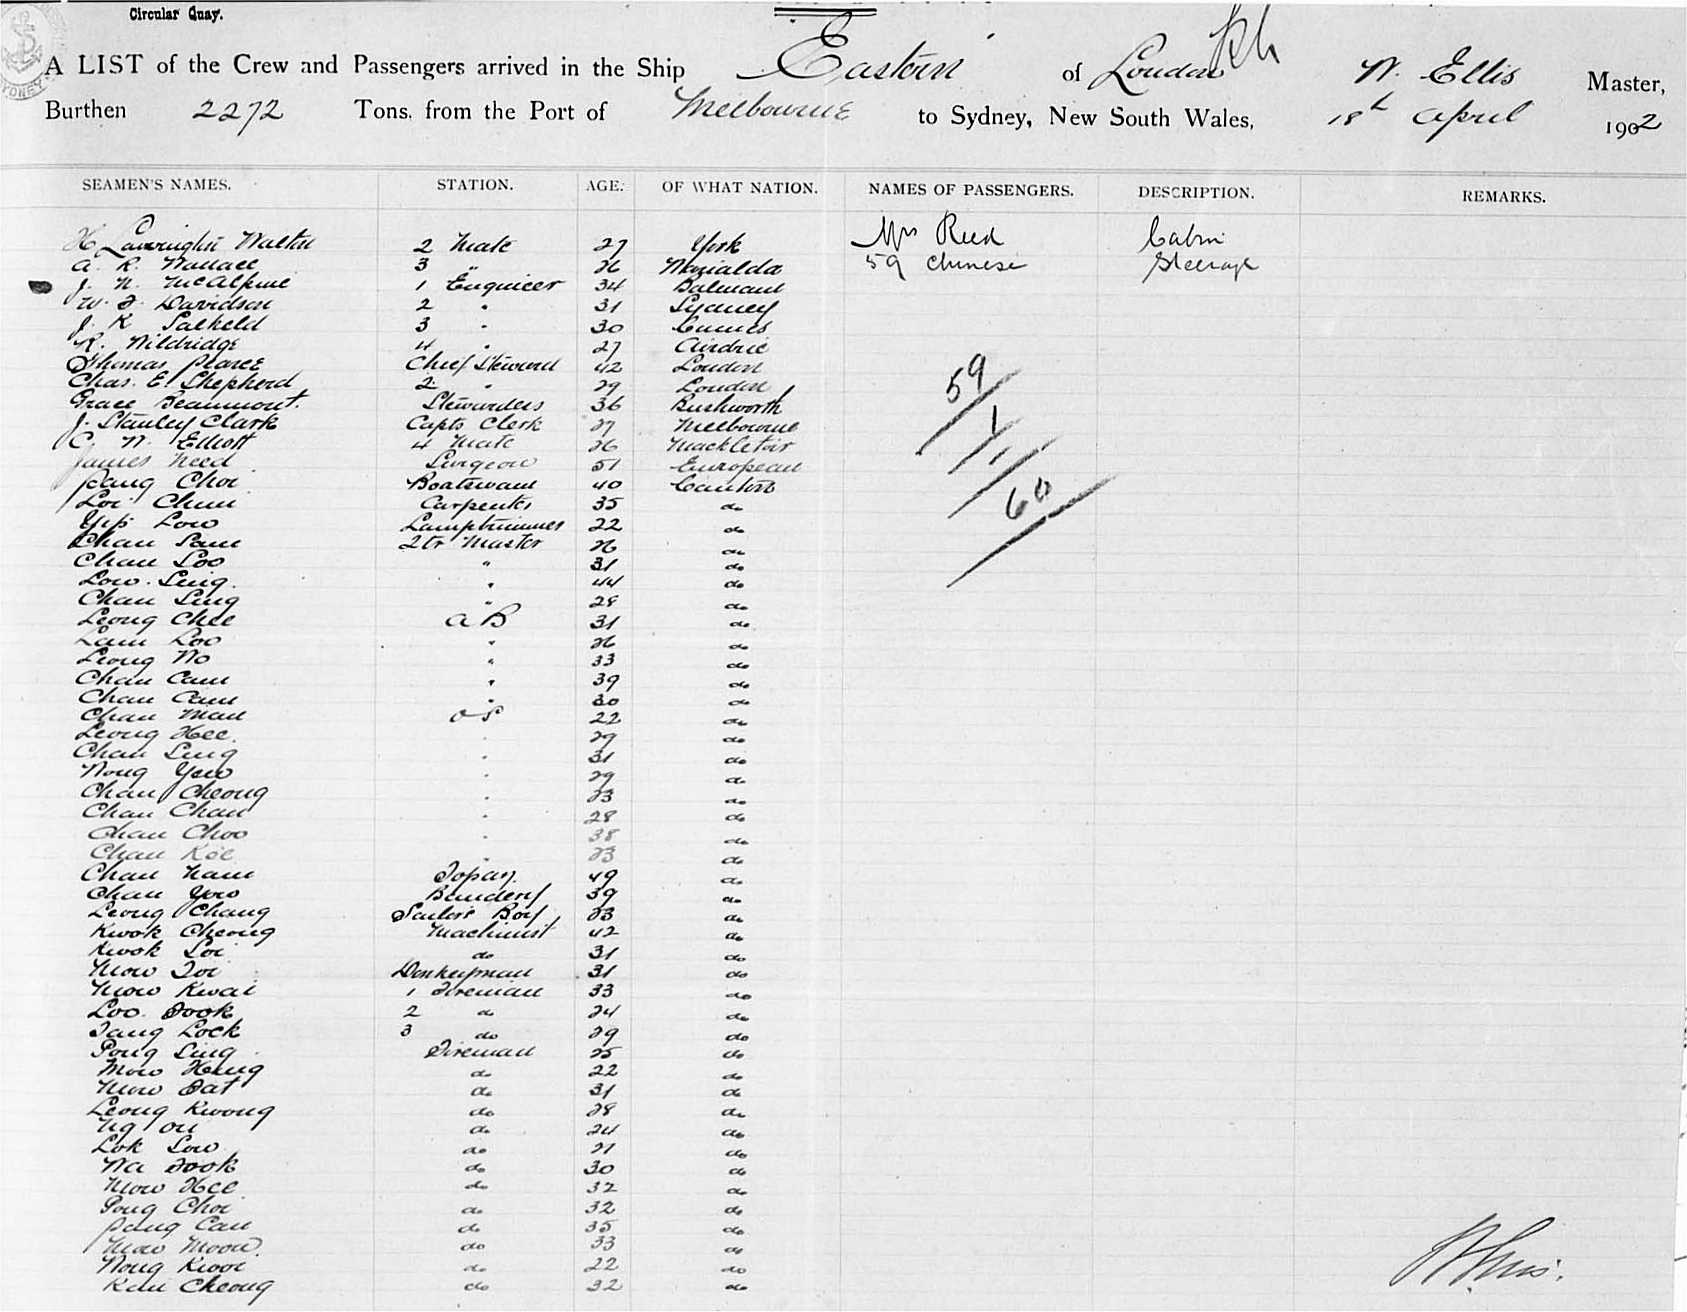 Circular Quay.
A LIST of the Crew and Passengers arrived in the Ship Eastern of London W. Ellis Master,
Burthen 2272 Tons. from the Port of Melbourne to Sydney, New South Wales, 18th April 1902
SEAMEN'S NAMES. STATION. AGE. OF WHAT NATION. NAMES OF PASSENGERS. DESCRIPTION. REMARKS.
H 2 Mate 27 York Mrs Reed Cabin
A. R. Wallace 3 " 26 59 Chinese Steerage
J. N. McAlpine 1 Engineer 34 Balmain
W. J. Davidson 2 " 31 Sydney
J. K Salkeld 3 " 30
R. Wildridge 4 " 27 Airdrie
Thomas Pearce Chief Steward 42 London
Chas. E. Shepherd 2 " 29 London
Grace Beaumont. Stewardess 36 Rushworth
J. Stanley Clark Capts Clerk 27 Melbourne
C. N. Elliott 4 Mate 26
James Reed Surgeon 51 European
Pang Choi Boatswain 40 Canton
Loi Chun Carpenter 35 do
Yip Low Lamptrimmer 22 do
Chan Sam 2tr Master 26 do
Chan Loo " 31 do
Low Ling. " 44 do
Chan Ling " 28 do
Leong Chee AB 31 do
Lam Loo " 26 do
Leong Wo " 33 do
Chan Cam " 39 do
Chan Cam " 30 do
Chan Man OS 22 do
Leong Hee. " 29 do
Chan Sing " 31 do
Wong Yew " 29 do
Chan Cheong " 23 do
Chan Chan " 28 do
Chan Choo " 38 do
Chan Kee " 23 do
Chan Nam Topaz 49 do
Chan Yow 39 do
Leong Chang Sailors Boy 23 do
Kwok Cheong Machinist 42 do
Kwok Loi do 31 do
Mow Toi Donkeyman 31 do
Mow Kwai 1 Fireman 33 do
Loo Fook 2 do 24 do
Tang Lock 3 do 29 do
Pong Ling Fireman 25 do
Mow Hung do 22 do
Mow Fat do 31 do
Leong Kwong do 28 do
Ng On do 24 do
Lok Low do 21 do
Wa Fook do 30 do
Mow Hee do 32 do
Pong Choi do 32 do
Pang Can do 35 do
Mow Moon. do 33 do
Wong Kwoi do 22 do
Kan Cheong do 32 do
59
1
1
60